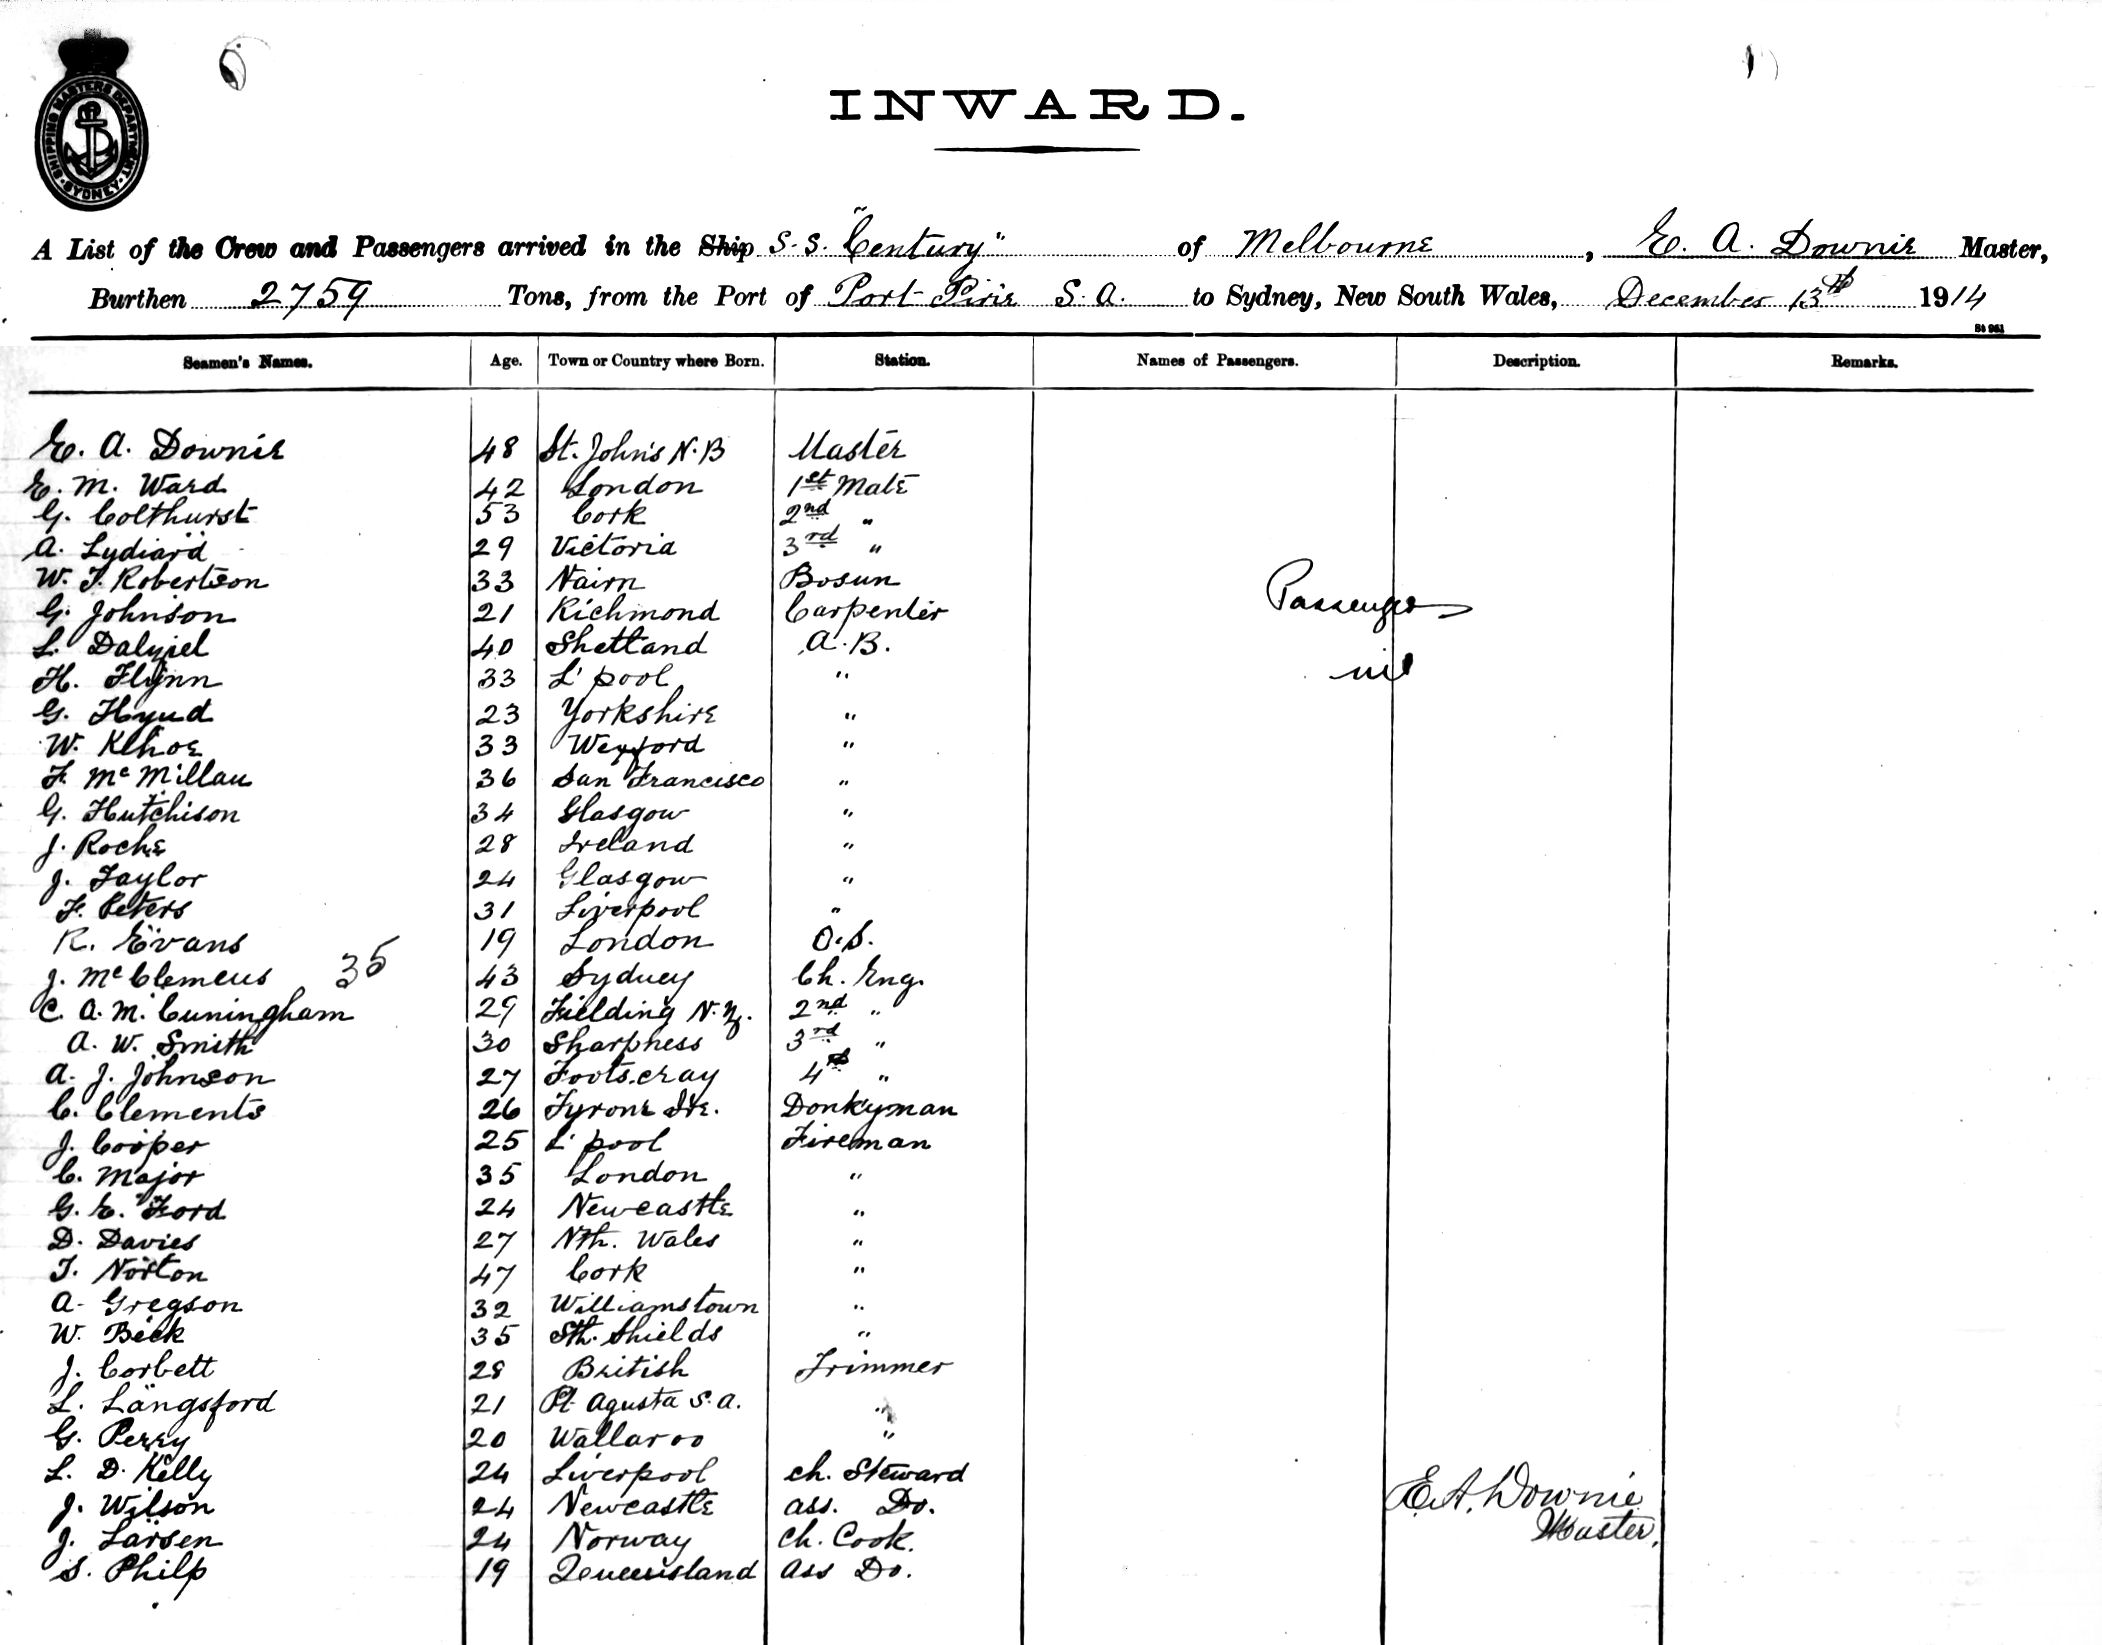 SHIPPING MASTERS DEPARTMENT. SYDNEY
INWARD.
A List of the Crew and Passengers arrived in the Ship S.S. "Century" of Melbourne, E. A. Downie Master,
Burthen 2759 Tons, from the Port of Port Pirie S.A. to Sydney, New South Wales, December 13th 1914
St 961
Seamen's Names. Age. Town or Country where Born. Station. Names of Passengers. Description. Remarks.
E. A. Downie 48 St. John's N.B Master
E. M. Ward 42 London 1st Mate
G. Colthurst 53 Cork 2nd "
A. Lydiard 29 Victoria 3rd "
W. J. Robertson 33 Nairn Bosun
G. Johnson 21 Richmond Carpenter Passengers
L. Dalziel 40 Shetland A.B.
H. Flynn 33 L'pool " nil
G. Hyud 23 Yorkshire "
W. Kehoe 33 Wexford "
F. McMillan 36 San Francisco "
G. Hutchison 34 Glasgow "
J. Roche 28 Ireland "
J. Taylor 24 Glasgow "
F. Peters 31 Liverpool "
R. Evans 19 London O.S.
J. McClemens 35 43 Sydney Ch. Eng.
C. A. M. Cuningham 29 Fielding N.Z. 2nd "
A. W. Smith 30 Sharpness 3rd "
A. J. Johnson 27 Footscray 4th "
C. Clements 26 Tyrone Ire. Donkyman
J. Cooper 25 L'pool Fireman
C. Major 35 London "
G. E. Ford 24 Newcastle "
D. Davies 27 Nth. Wales "
T. Norton 47 Cork "
A. Gregson 32 Williamstown "
W. Beck 35 Sth. Shields "
J. Corbett 28 British Trimmer
L. Langsford 21 Pt Agusta S.A. "
G. Perry 20 Wallaroo "
L. D. Kelly 24 Liverpool Ch. Steward
J. Wilson 24 Newcastle Ass. Do. E. A. Downie
J. Larsen 24 Norway Ch. Cook. Master.
S. Philp 19 Queensland Ass Do.